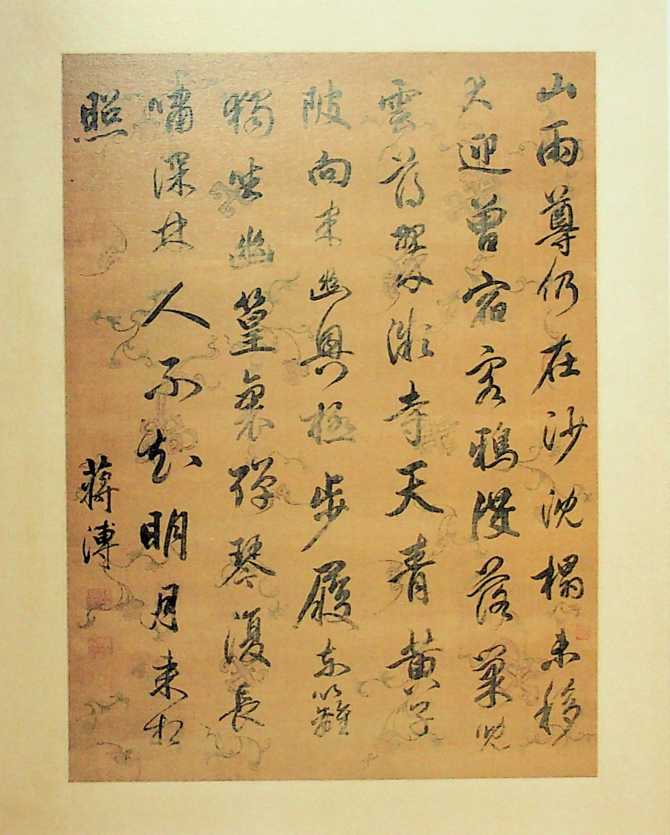 山雨尊仍在沙沈榻未移
犬迎曾宿客鴉護落巢兒
雲薄翠微寺天青黃子
陂向來幽興極步履東籬
獨坐幽篁裏彈琴復長
嘯深林人不知明月來相
照
蔣溥